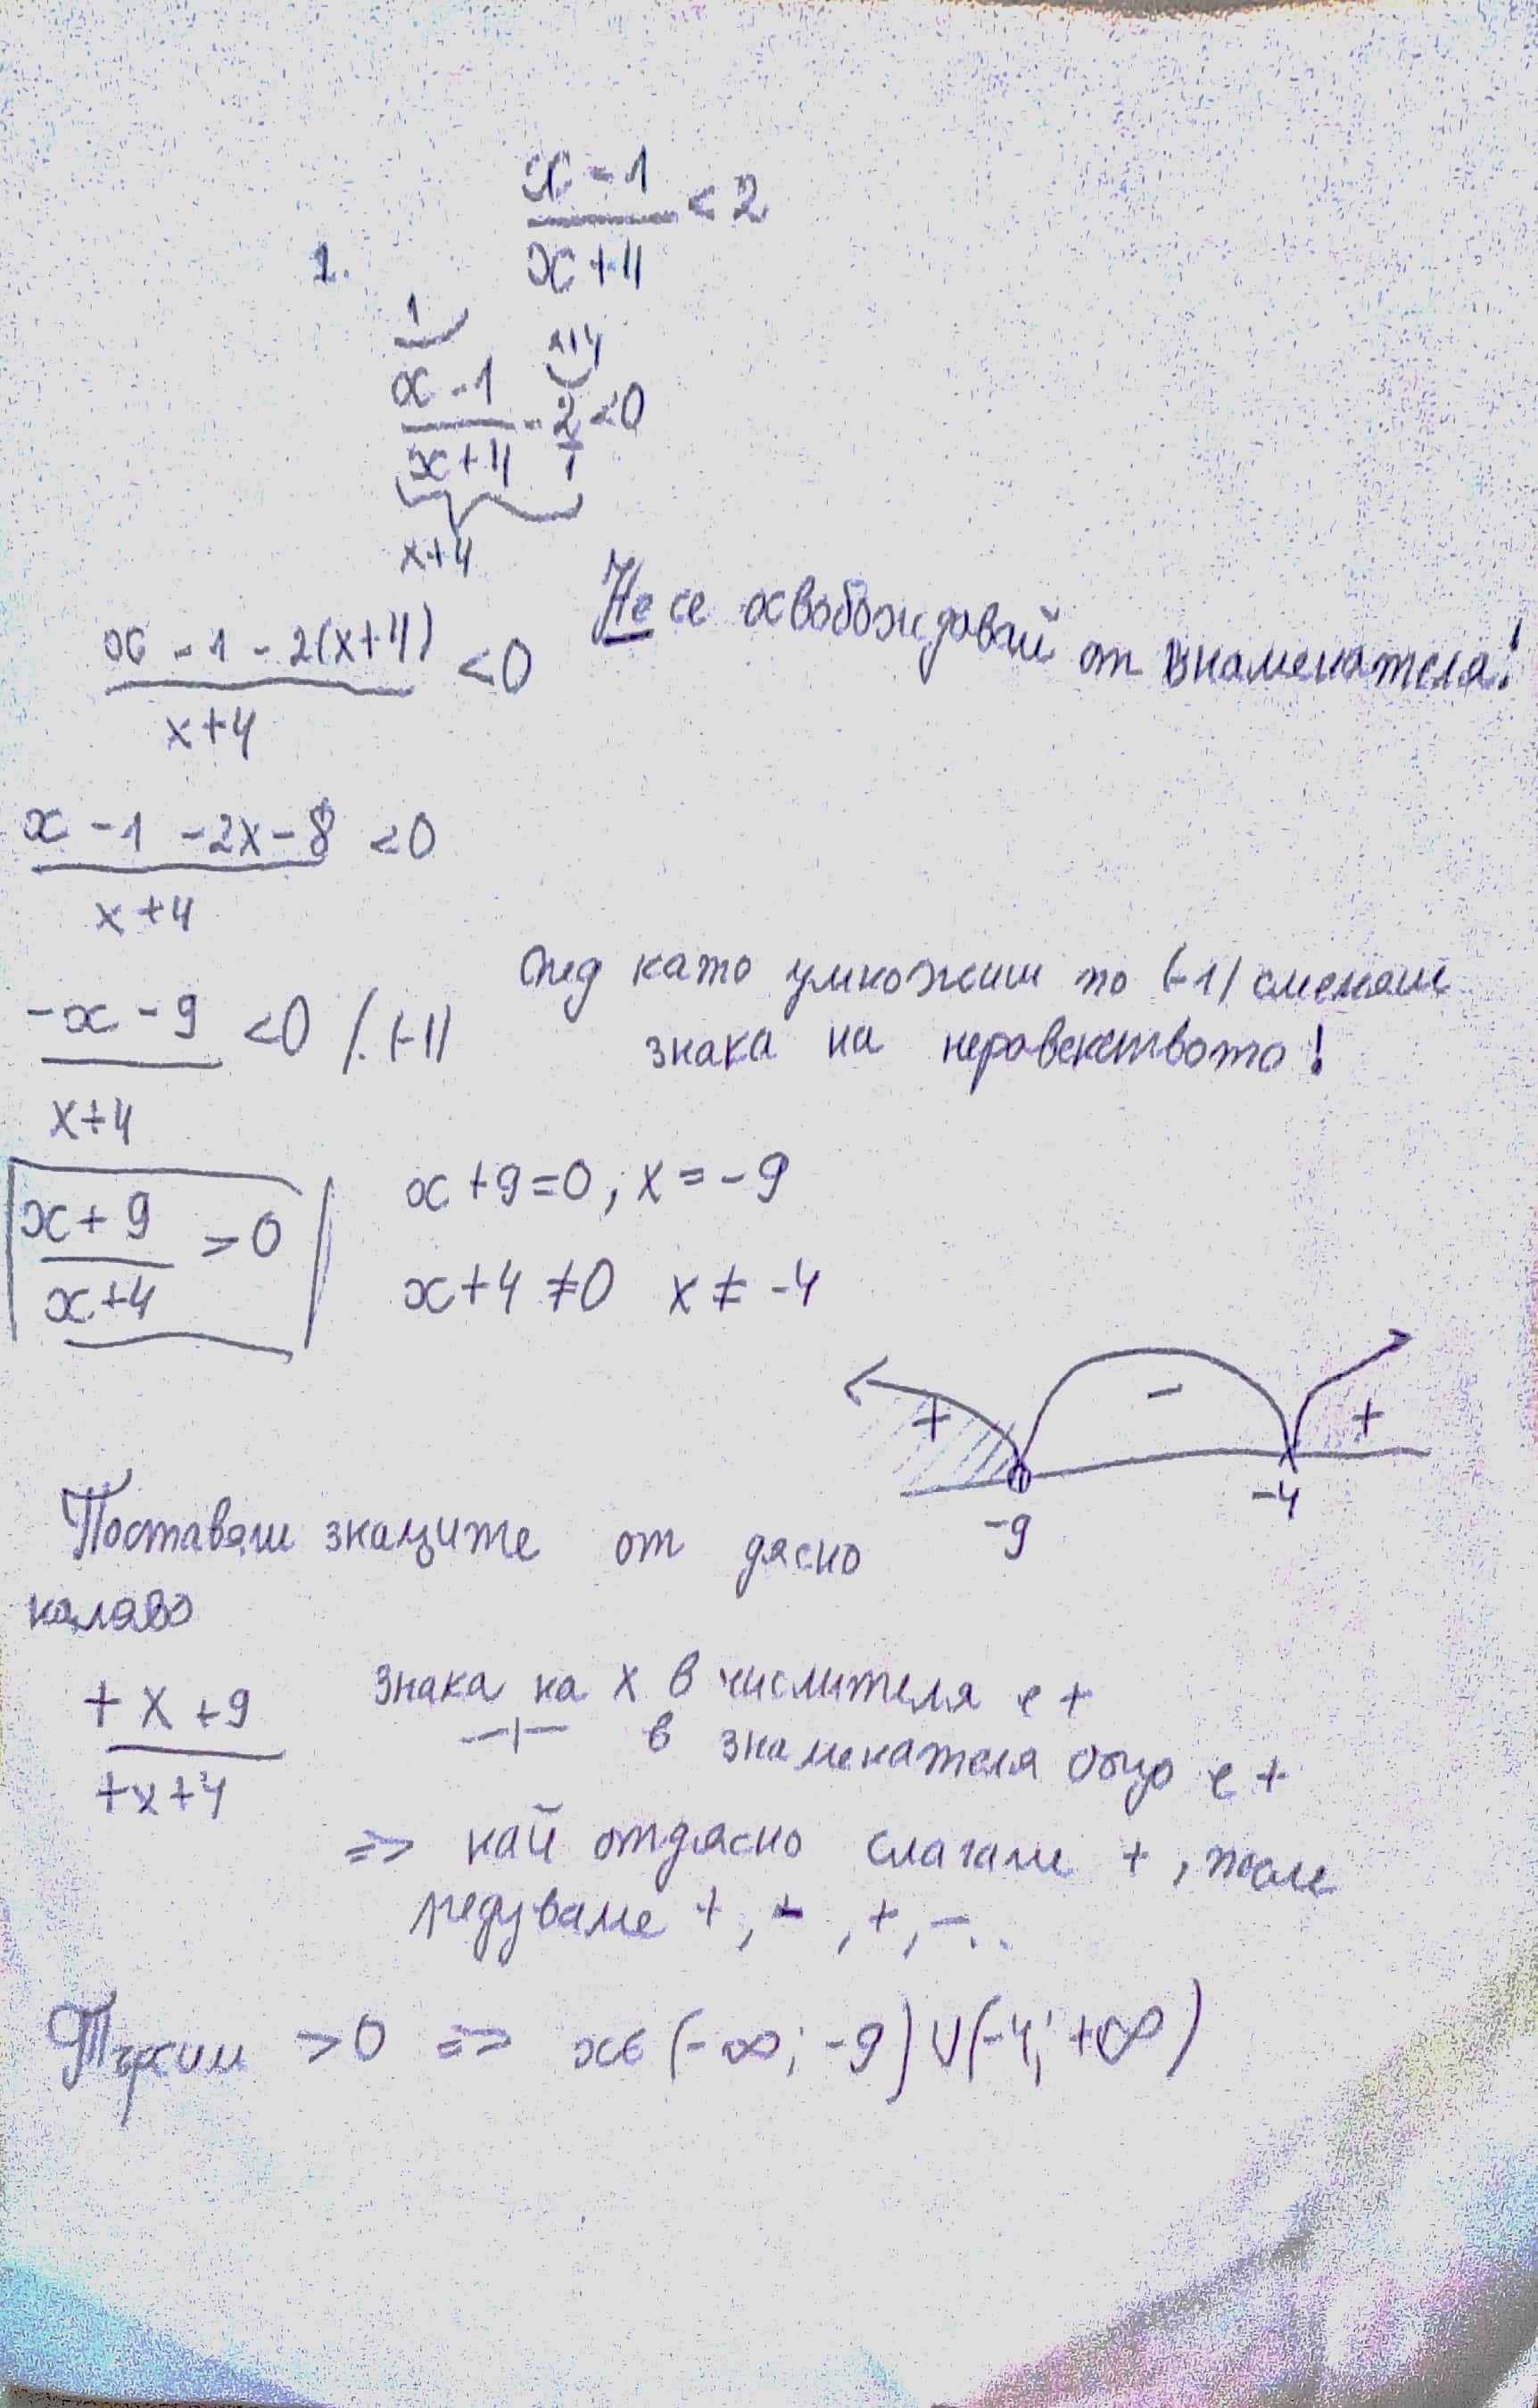 1.
x - 1
< 2
x + 4
1
x+4
x - 1
- 2 < 0
x + 4 1
x+4
x - 1 - 2(x+4)
< 0
x+4
Не се освобождавай от знаменателя!
x - 1 - 2x - 8 < 0
x + 4
-x - 9 < 0 /.(-1)
x+4
След като умножиш по (-1) сменяш
знака на неравенството!
x + 9
> 0
x+4
x + 9 = 0; x = -9
x + 4 ≠ 0 x ≠ -4
+ - +
-9 -4
Поставяш знаците от дясно
наляво
+ x + 9
+x+4
знака на x в числителя е +
—ı— в знаменателя също е +
=> най отдясно слагаме +, после
редуваме +, -, +, -..
Търсим > 0 => x∈(-∞; -9)∪(-4; +∞)